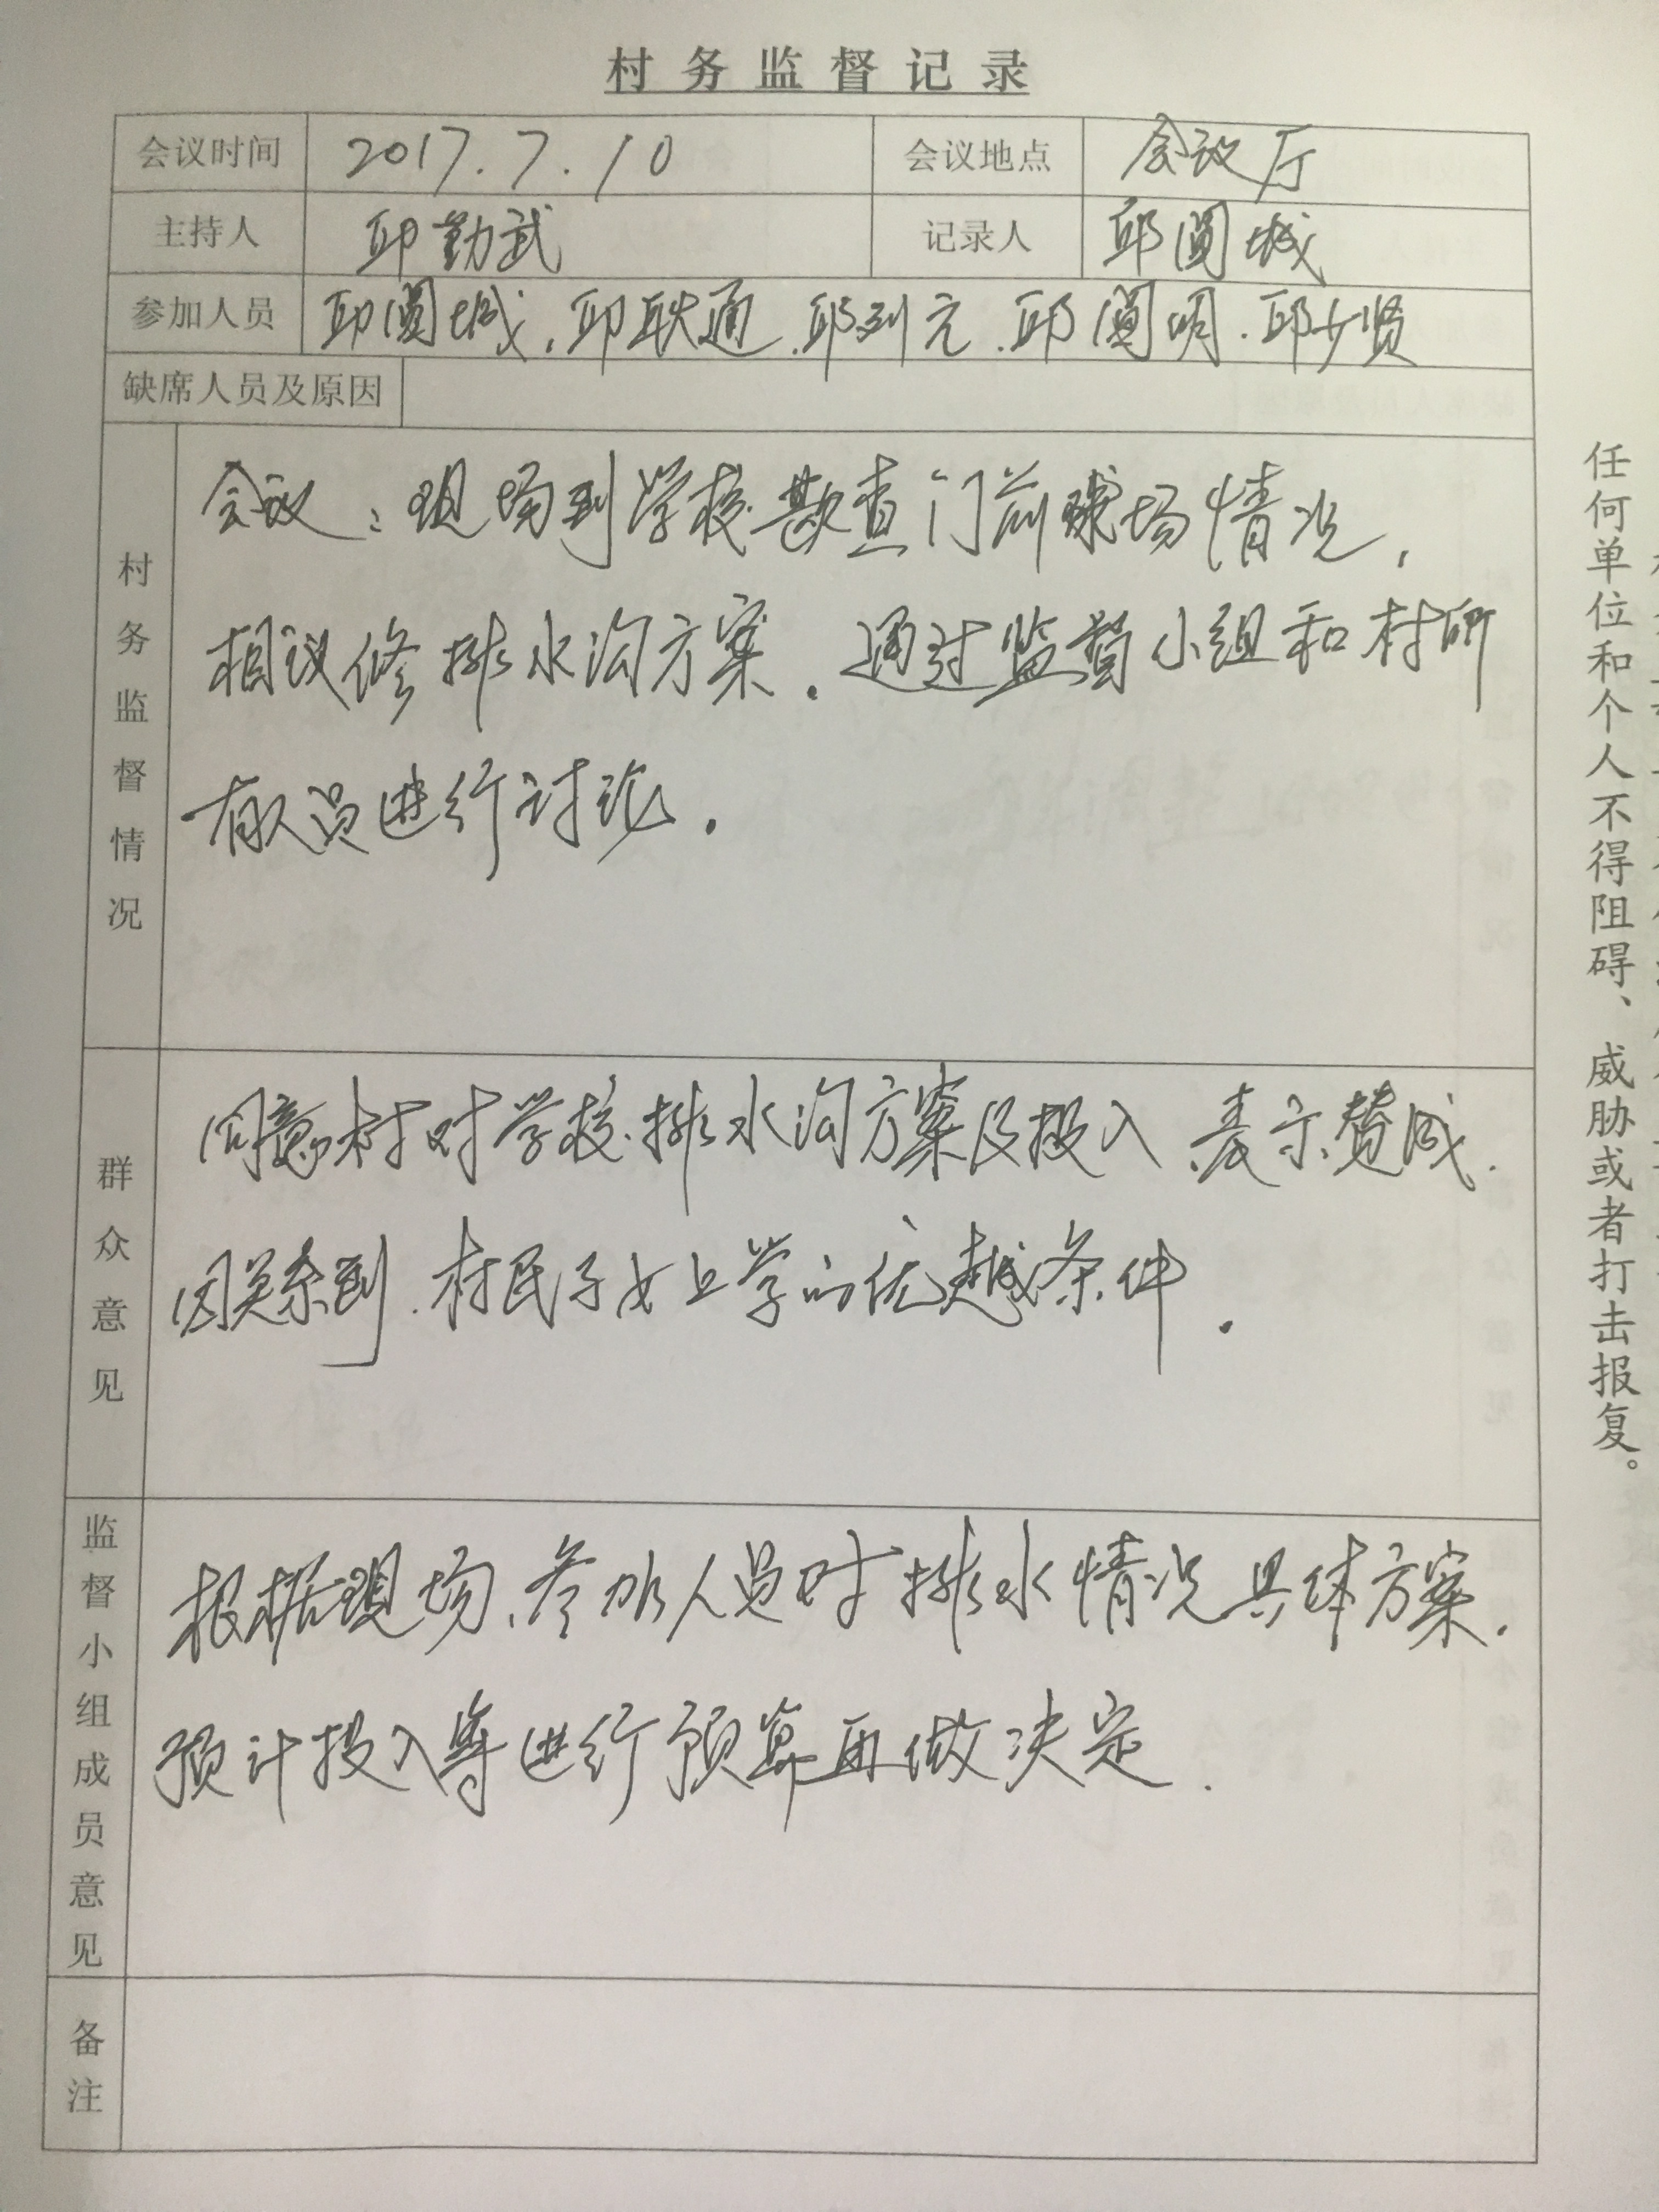 村务监督记录
会议时间 2017.7.10 会议地点 会议厅
主持人 邱勤武 记录人 邱圆城
参加人员 邱圆城.邱联通.邱列元.邱圆明.邱少贤
缺席人员及原因
村务监督情况
会议：现场到学校勘查门前球场情况，
相议修排水沟方案.通过监督小组和村所
有人员进行讨论.
群众意见
同意村对学校排水沟方案及投入表示赞成.
因关系到村民子女上学的优越条件.
监督小组成员意见
根据现场、参加人员对排水情况具体方案.
预计投入等进行预算再做决定.
备注
任何单位和个人不得阻碍、威胁或者打击报复。